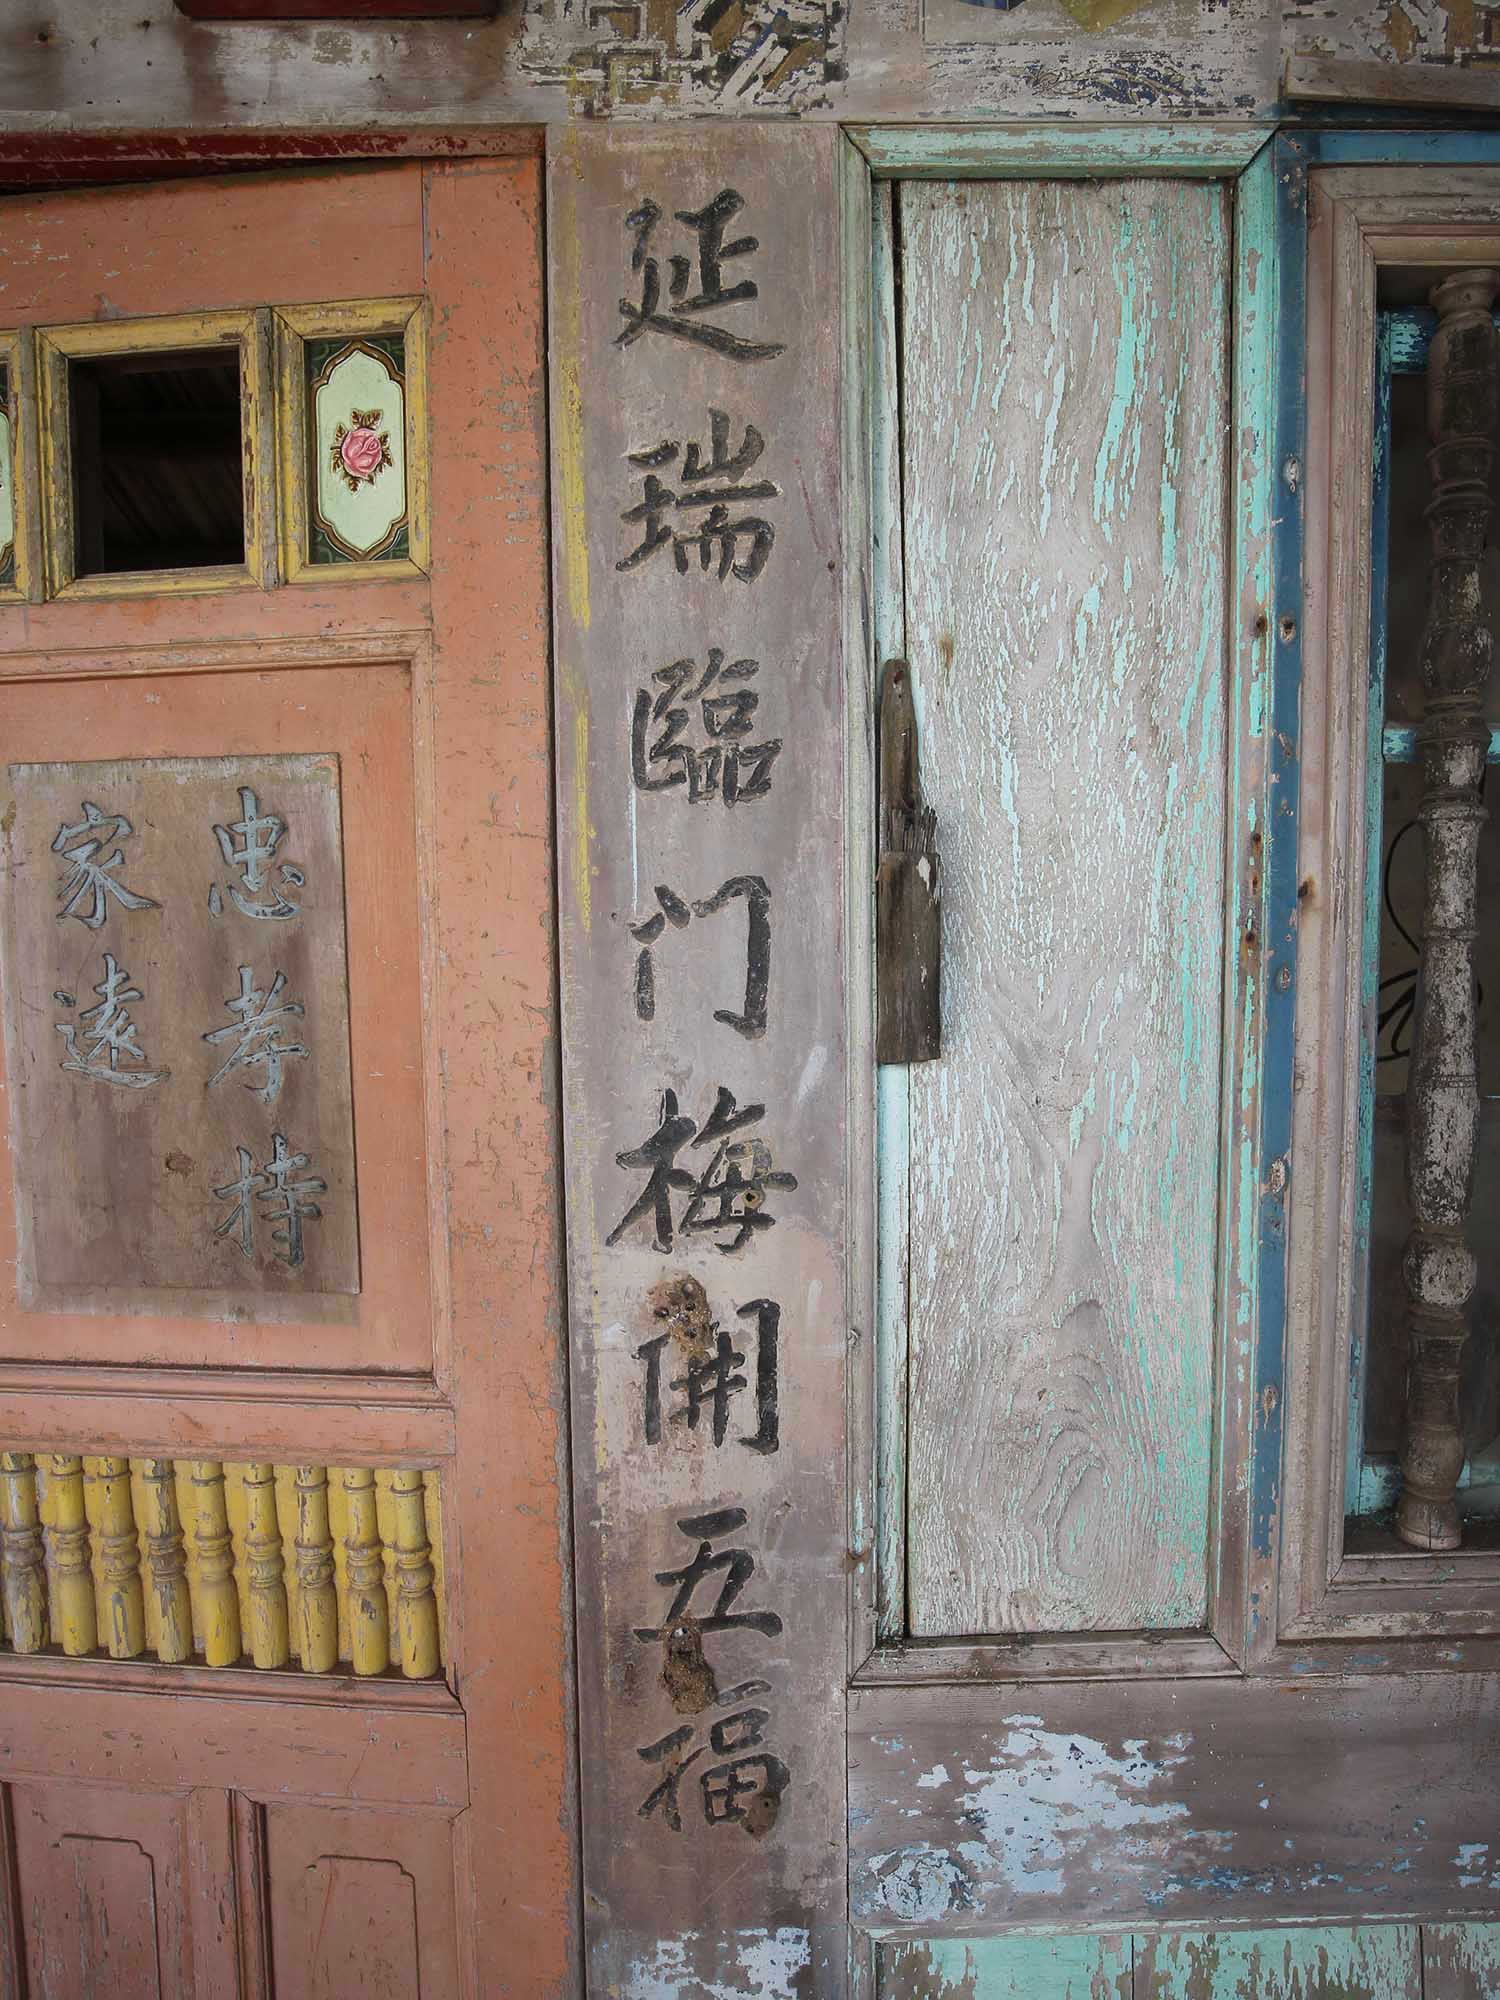 延瑞臨门梅開五福
忠孝持
家遠